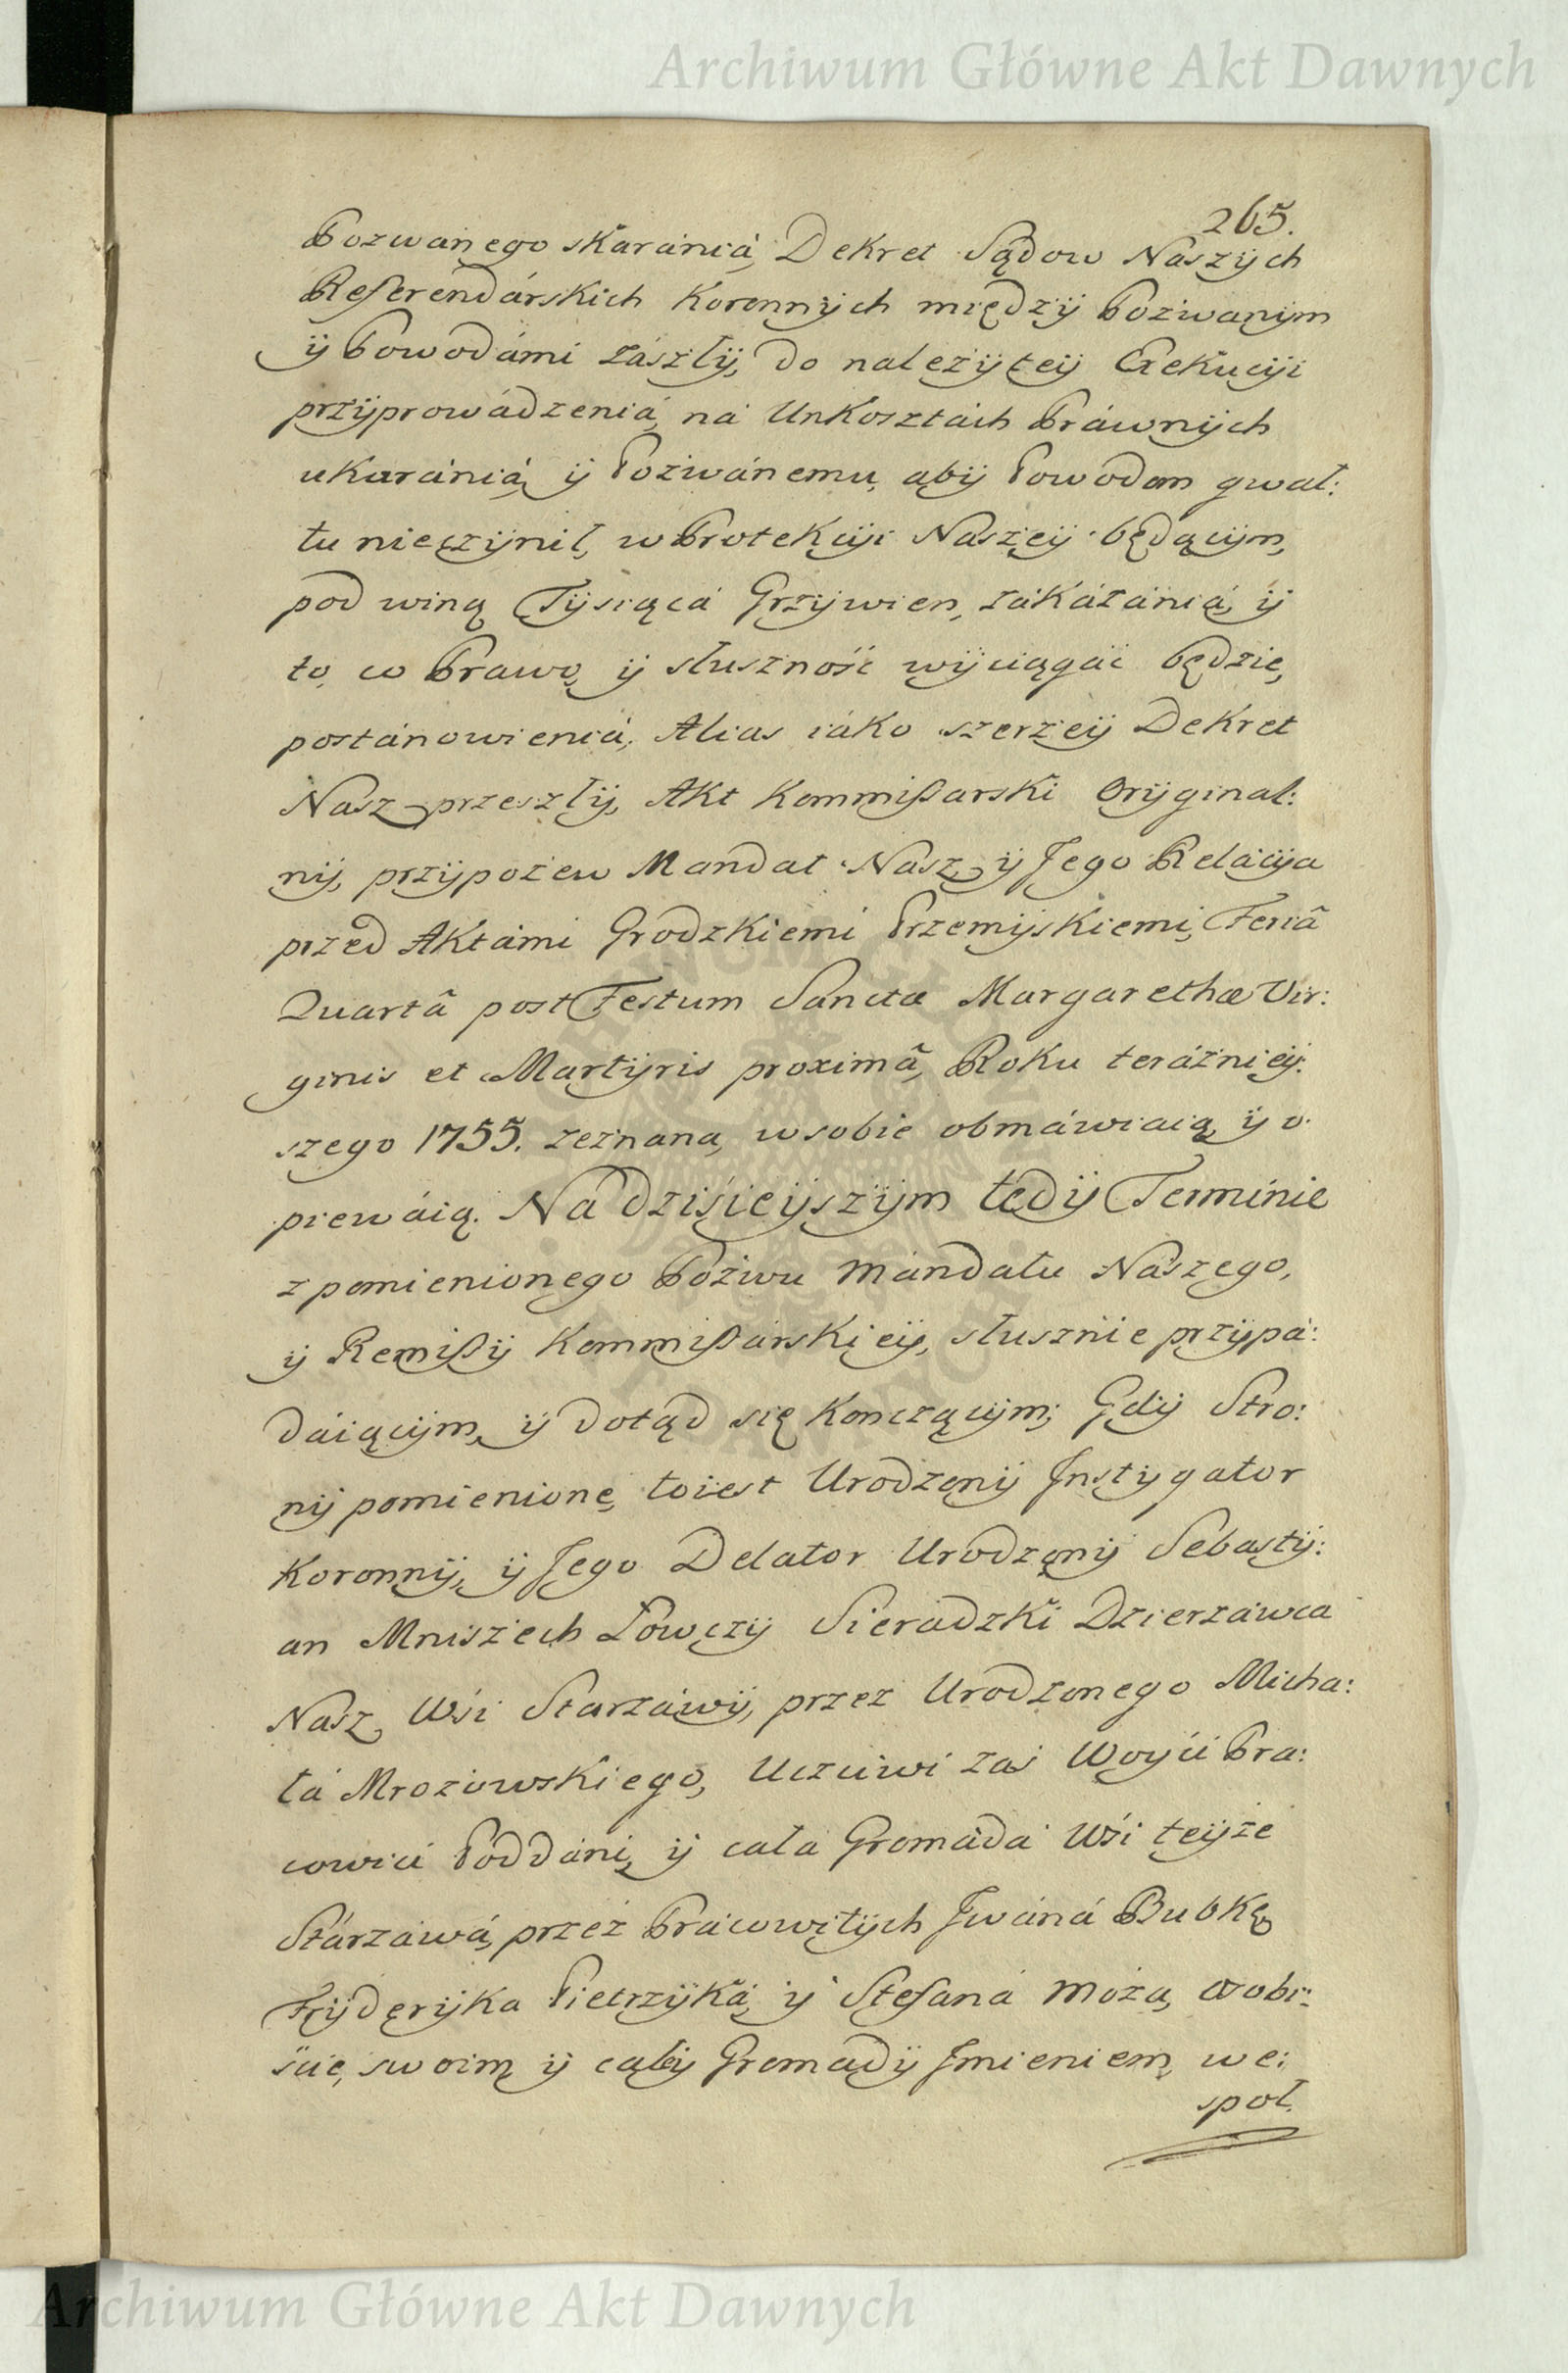 Archiwum Główne Akt Dawnych
265.
Pozwanego skaránia, Dekret Sądow Naszÿch
Referendárskich Koronnÿch międzÿ Pozwanÿm
ÿ Powodámi zászłÿ, do należÿteÿ Exekucÿi
przÿprowádzeniá, ná Unkosztách Práwnÿch
ukaránia, ÿ Pozwánemu, abÿ Powodom gwał:
tu nieczÿnił, w Protekcÿi Naszeÿ będącÿm,
pod winą Tÿsiącá Grzÿwien, zákázánia, ÿ
to, co Prawo, ÿ słuszność wÿciągáć będzie,
postánowieniá, Alias iáko szerzeÿ Dekret
Nasz przeszłÿ, Akt Kommißarski Orÿginal:
nÿ, przÿpozew Mandat Nasz, ÿ Jego Relácÿa
przed Aktámi Grodzkiemi Przemÿskiemi, Feriâ
Quartâ post Festum Sanctæ Margarethæ Vir:
ginis et Martÿris proximâ, Roku teráznieÿ:
szego 1755. zeznana, w sobie obmáwiaią, ÿ o.
piewáią. Ná dzisieÿszÿm tedÿ Terminie
z pomienionego Pozwu Mándatu Nászego,
ÿ Remißÿ Kommißárskieÿ, słusznie przÿpá:
dáiącÿm, ÿ dotąd się kończącÿm; Gdÿ Stro:
nÿ pomienione, toiest Urodzonÿ Instÿgator
Koronnÿ, ÿ Jego Delator Urodzonÿ Sebastÿ:
an Mniszech Łowczÿ Sieradzki Dzierzáwca
Nasz, Wśi Starzáwÿ, przez Urodzonego Micha:
łá Mrozowskiego, Uczciwi zaś Woÿći Pra:
cowići Poddáni, ÿ cała Gromádá Wśi teÿże
Stárzáwá, przez Prácowitÿch Iwáná Bubkę
Frÿderÿka Pietrzÿká, ÿ Stefaná Moza, osobi:
śćie, swoim ÿ całÿ Gromadÿ Imieniem, we:
społ.
Archiwum Główne Akt Dawnych